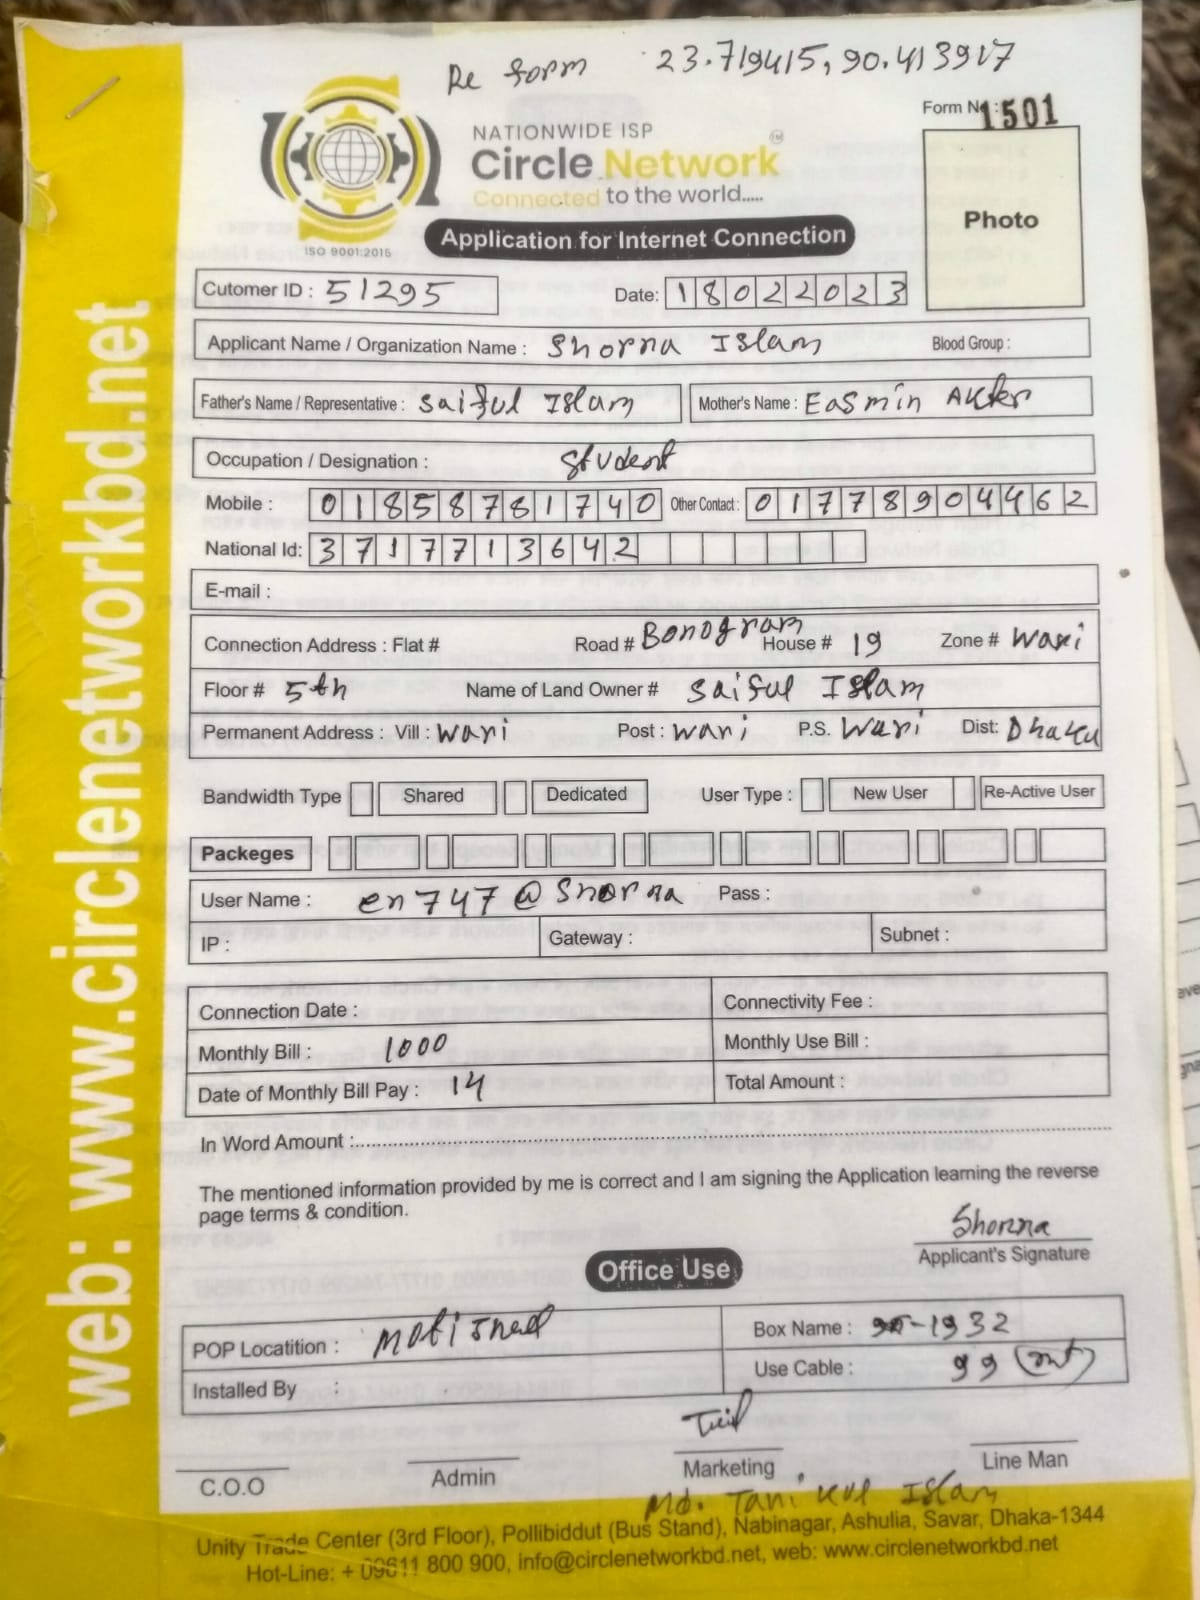 Re form 23.719415, 90.413917
Form No: 1501
NATIONWIDE ISP
Circle Network
Connected to the world.....
ISO 9001:2015
Application for Internet Connection
Photo
Cutomer ID : 51295
Date: 18022023
Applicant Name / Organization Name : Shorna Islam Blood Group :
Father's Name / Representative : Saiful Islam Mother's Name : Easmin Akter
Occupation / Designation : Student
Mobile : 01858781740 Other Contact : 01778904462
National Id: 3717713642
E-mail :
Connection Address : Flat # Road # Bonogram House # 19 Zone # Wari
Floor # 5th Name of Land Owner # Saiful Islam
Permanent Address : Vill : Wari Post : Wari P.S. Wari Dist: Dhaka
Bandwidth Type Shared Dedicated User Type : New User Re-Active User
Packeges
User Name : en747@Shorna Pass :
IP : Gateway : Subnet :
Connection Date : Connectivity Fee :
Monthly Bill : 1000 Monthly Use Bill :
Date of Monthly Bill Pay : 14 Total Amount :
In Word Amount :
The mentioned information provided by me is correct and I am signing the Application learning the reverse
page terms & condition.
Shorna
Applicant's Signature
Office Use
POP Locatition : Motijheel Box Name : -1932
Installed By : Use Cable : 99
C.O.O Admin Marketing Line Man
Md. Tanikul Islam
Unity Trade Center (3rd Floor), Pollibiddut (Bus Stand), Nabinagar, Ashulia, Savar, Dhaka-1344
Hot-Line: + 09611 800 900, info@circlenetworkbd.net, web: www.circlenetworkbd.net
web: www.circlenetworkbd.net